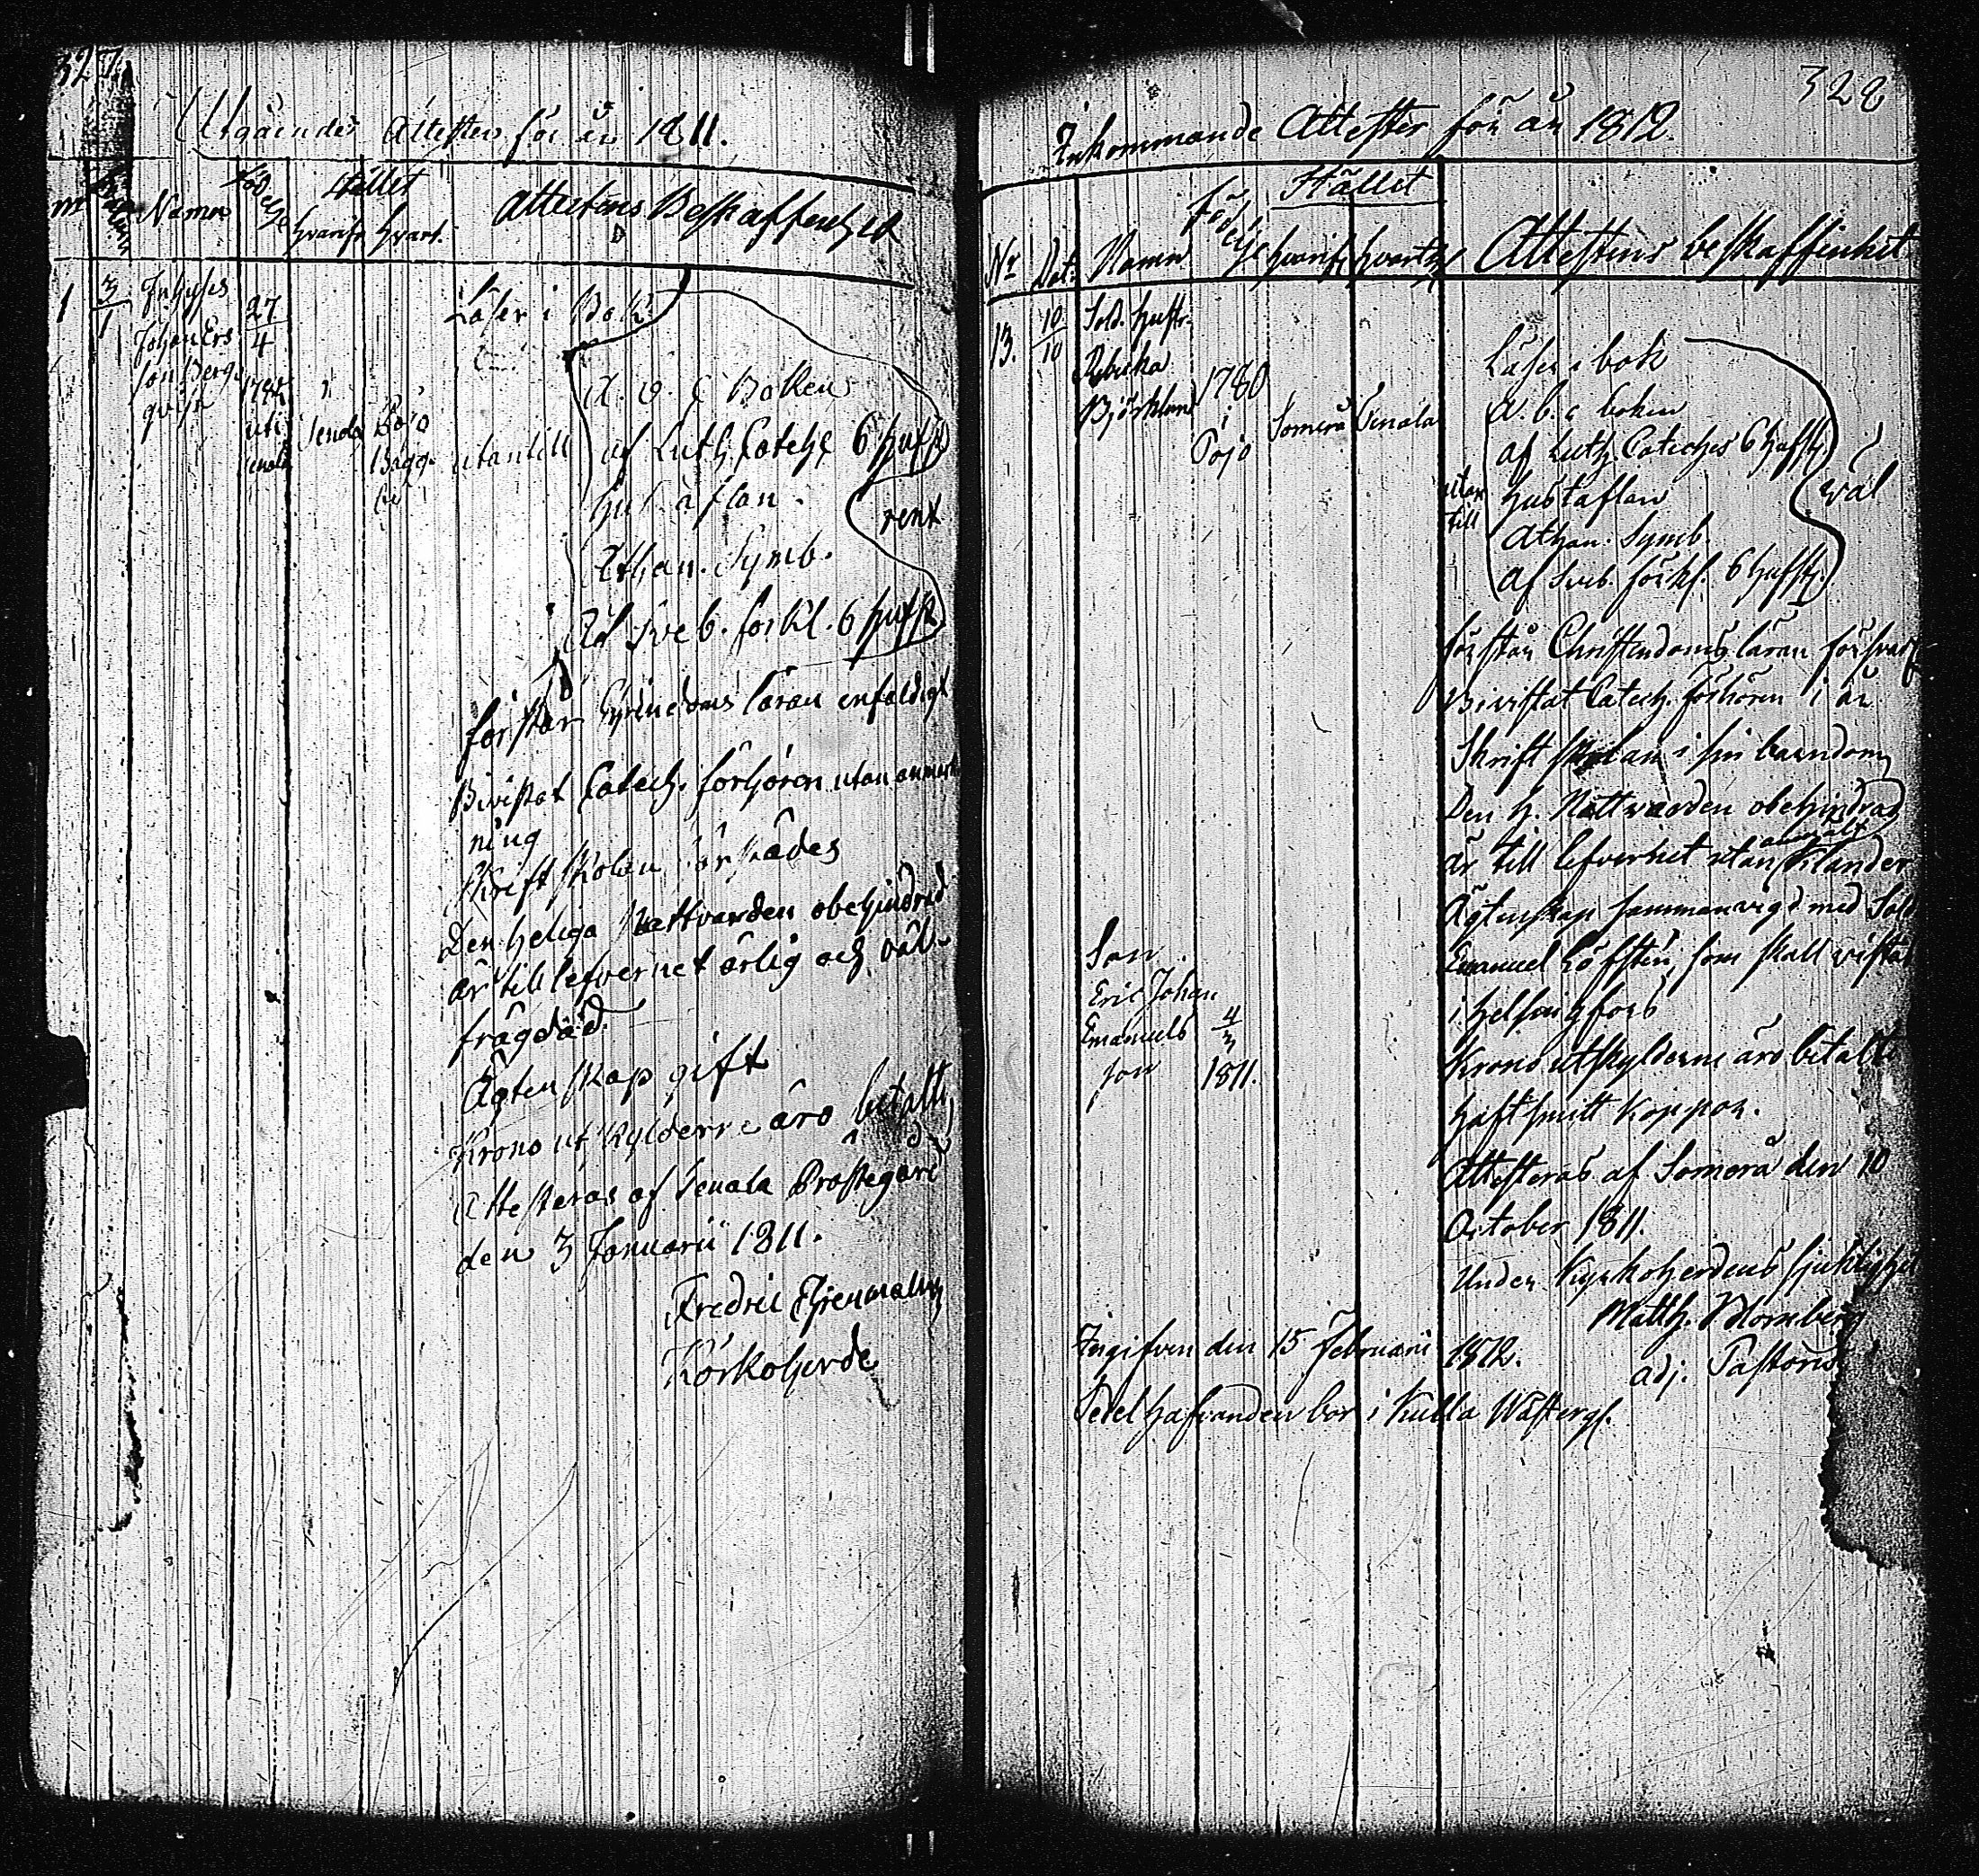 327.
Utgående Attester för år 1811.
Namn
Födelse
Stället
hvarifr. hvart.
Attestens Beskaffenhet
1
3/1
Inhyses
Johan Ers
son Berg
qvist
27/4
uti
Senala
Senala
Böle
Läser i Bok
utantill
A. b. c Boken
af Luth. Cateches 6 hufst
hustaflan
Athan. Symb.
Af Sveb. förkl. 6 hufst
rent
förstår Christendoms läran enfaldigt
Bivistat Catech. förhören utan anmärk
ning
Skriftskolan
Den heliga Nattvarden obehindrad
är till lefvernet ärlig och väl
frägdad.
Ägtenskap gift
Krono utskylderne äro betalte
Attesteras af Senala Prästegård
den 3 Januarii 1811.
Fredric
Körkoherde
328
Inkommande Attester för år 1812.
Nr Dat: Namn
Födelse
Stället
hvarifr. hvarthe
Attestens beskaffenhet
13.
10/10
Sold. hustr.
Rebecka
Björklund
1780
i
Pojo
Somero
Senala
Läser i bok
A. b. c boken
af Luth. Cateches 6 hufst.
utan
till
hustaflan
Athan. Symb.
Af Sveb. förkl. 6 hufst.
väl
förstår Christendoms läran försvarl.
Bivistat Catech. förhören i år
Skriftskolan i sin barndom
Den h. Nattvarden obehindrad
är till lefvernet utan anmält klander
Ägtenskap sammanvigd med Sold
Emanuel Löfsten, som skall vistas
i Helsingfors
Krono utskylderne äro betalte
haft smitt koppor.
Attesteras af Somero den 10
October 1811.
Under Kyrkoherdens sjuklighet
Matth. Blomberg
adj. Pastoris
Son
Eric Johan
Emanuels
son
4/3
1811.
Ingifven den 15 Februarii 1812.
Sedelhafvanden bor i Kulla Wästerg.